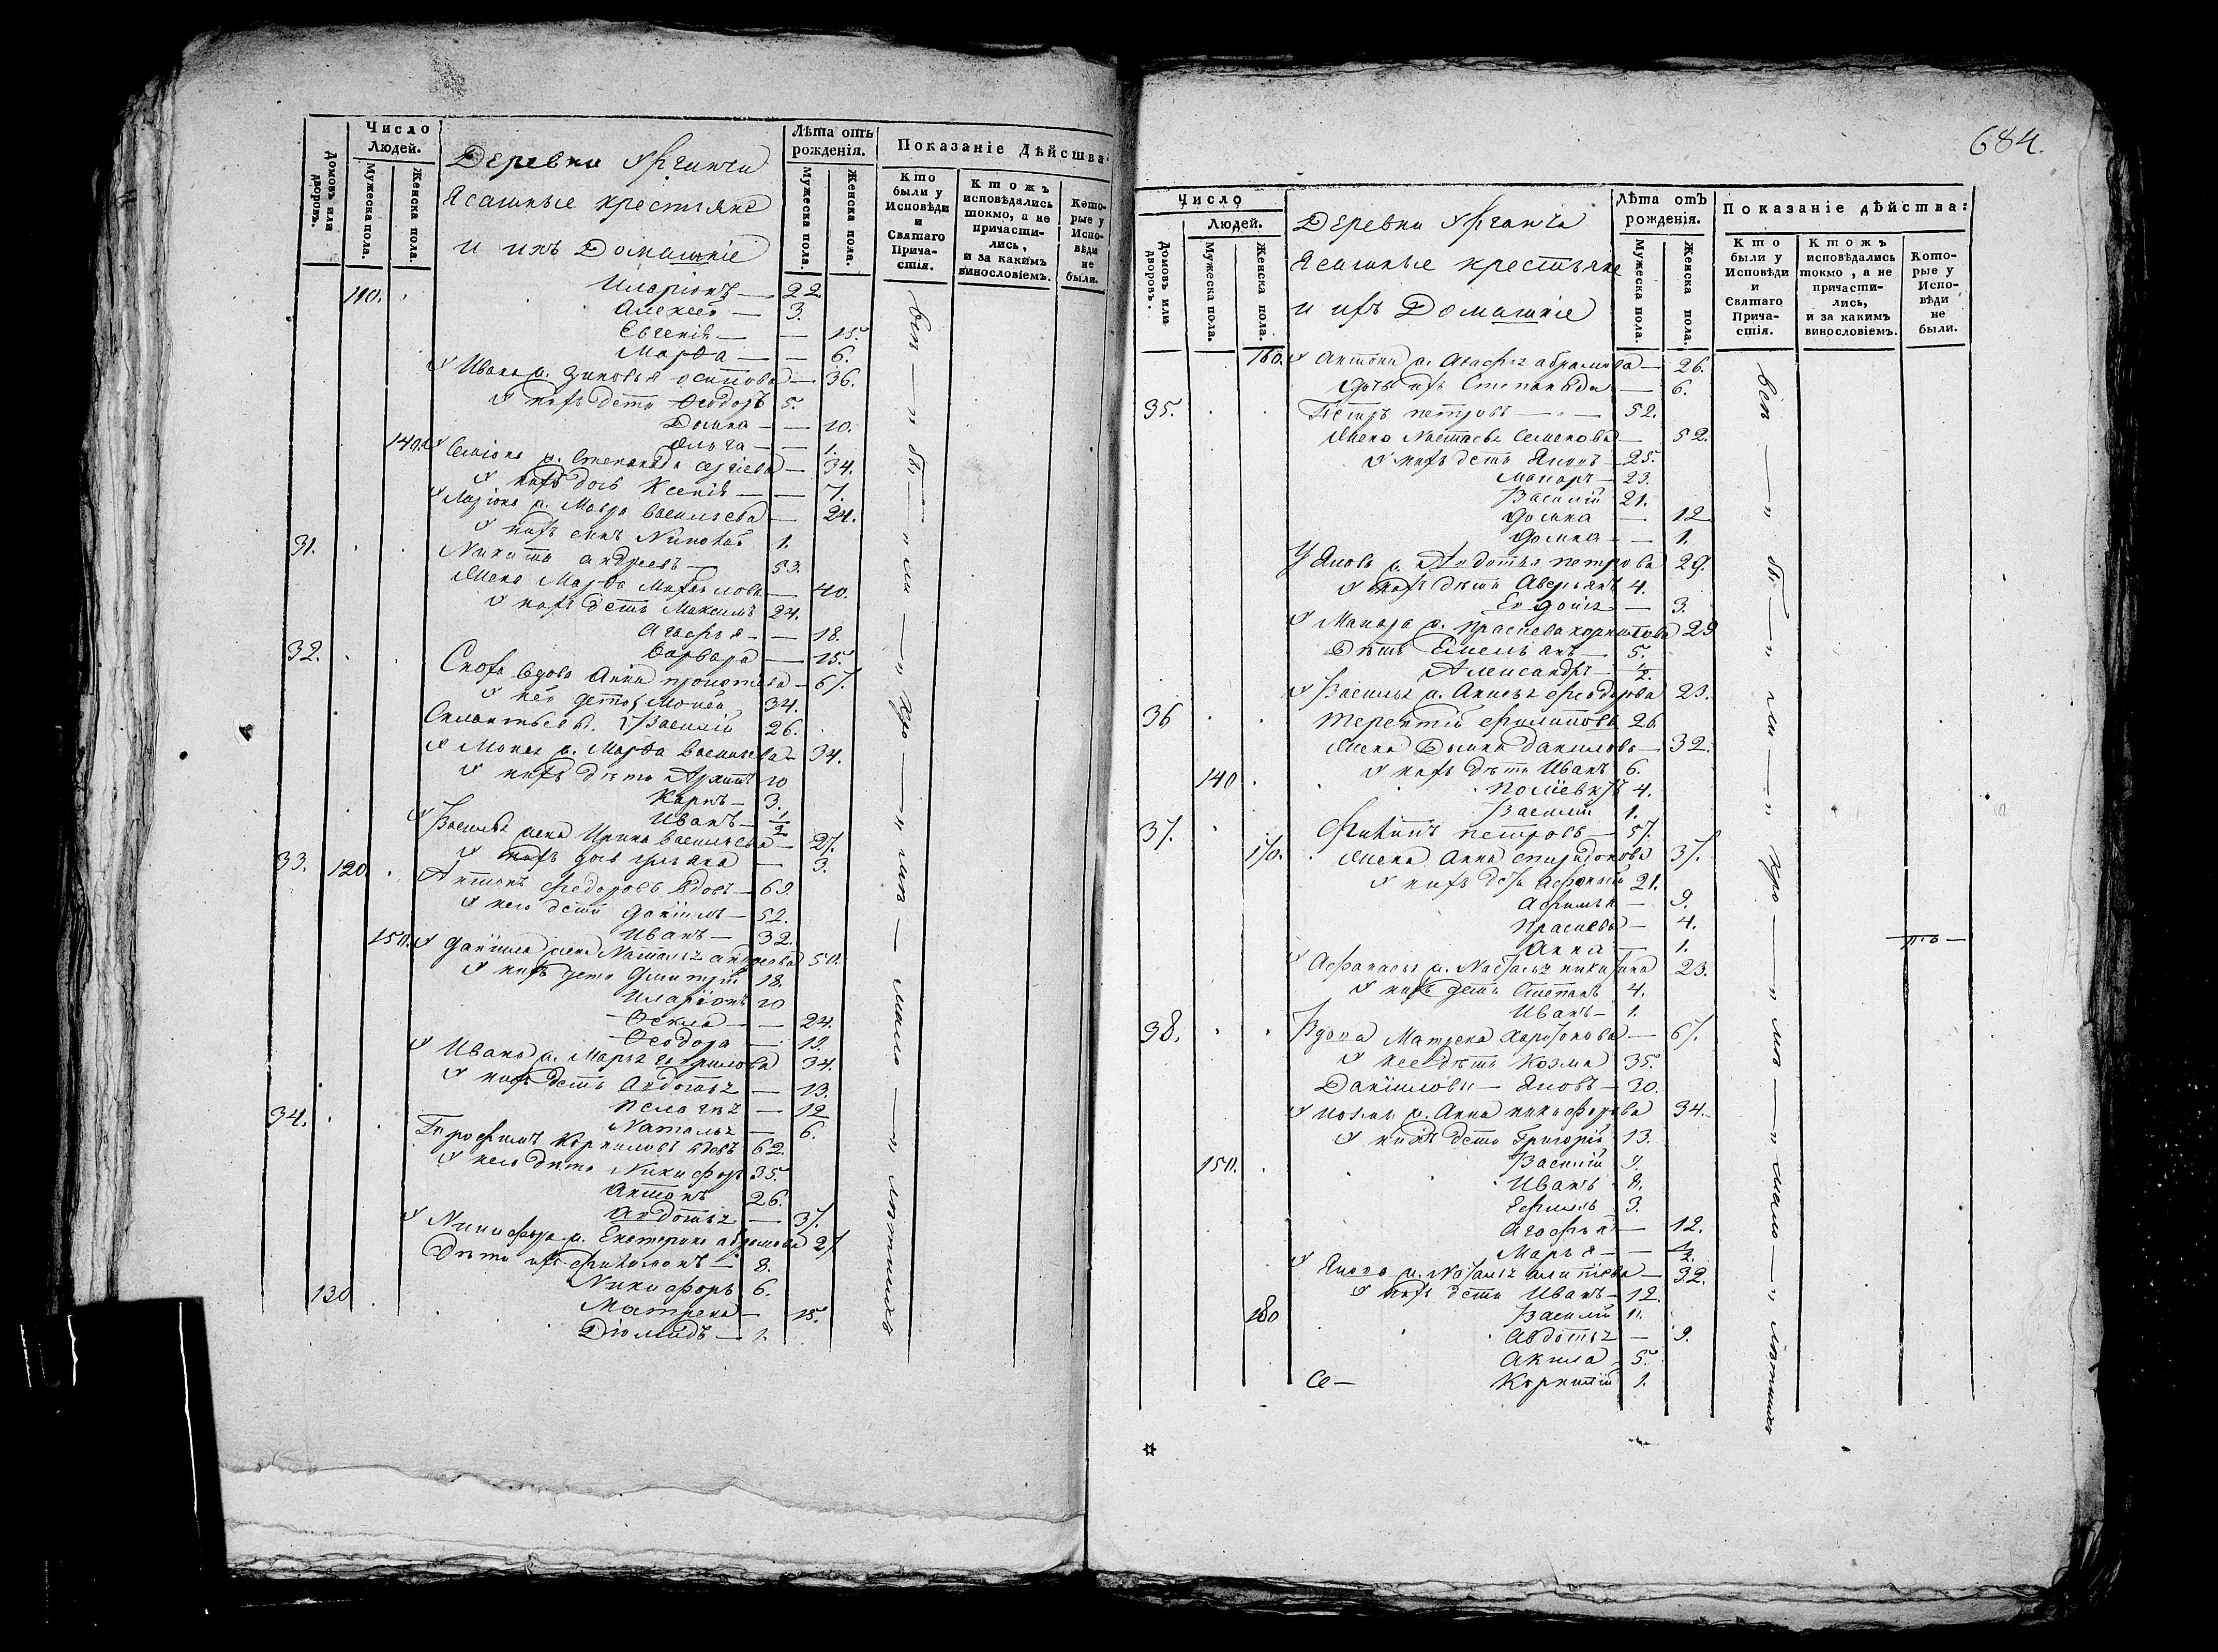 Число
Людей.
Домовъ или дворовъ.
Мужеска пола.
Женска пола.
Деревни Урганчи
Ясашные крестьяне
и ихъ Домашніе
Лѣта отъ рожденія.
Мужеска пола.
Женска пола.
Показаніе Дѣйства:
Кто были у Исповѣди и Святаго Причастія.
Ктожъ исповѣдались токмо, а не причастились, и за какимъ винословіемъ.
Которые у Исповѣди не были.
110. Иларіонъ — 22
Алексей — 3.
Евгенія — 15.
Марѳа — 6.
У Ивана ж. Зиновья осипова — 36.
У нихъ дети Ѳеодоръ 5.
Домна — 10.
140. Ольга — 1.
У ж. Степанида сергіева — 34.
У нихъ дочь Ксенія — 7.
У Ларіона ж. Мавра васильева — 24.
У нихъ сынъ 1.
31. Никита андреевъ — 53.
Жена Марѳа — 40.
У нихъ дети Максимъ 24.
Агафья — 18.
Варвара — 15.
32. вдова Анна — 67.
У нее дети Мокей 34.
Василій 26.
У Мокея ж. Марѳа васильева — 34.
У нихъ дети Архипъ 10
Карпъ — 3.
Иванъ — 1/2
У Василья жена Ирина васильева — 27.
У нихъ дочь ульяна — 3.
33. 120. Антонъ федоровъ вдовъ — 69.
У него дети Даніилъ — 52.
Иванъ — 32.
150. У Даніила жена Наталья андреева 50.
У нихъ дети Дмитрій 18.
Иларіонъ 10
Ѳекла — 24.
Ѳеодора — 19.
У Ивана ж. Марья гаврилова 34.
У нихъ дети Авдотья — 13.
Пелагея — 12
Наталья — 6.
34. Трофимъ Корниловъ вдовъ 62.
У него дети Никифоръ 35.
Антонъ 26.
Авдотья — 37.
У Никифора ж. Екатерина абрамова 27
Дети ихъ — 8.
Никифоръ 6.
130 Матрена — 15.
Діомидъ — 1.
всѣ — " бы — " ли — " Хро — " мѣ — мало — " лѣтнихъ
684.
Число
Людей.
Домовъ или дворовъ.
Мужеска пола.
Женска пола.
Деревни Урганчи
Ясашные крестьяне
и ихъ Домашніе
Лѣта отъ рожденія.
Мужеска пола.
Женска пола.
Показаніе дѣйства:
Кто были у Исповѣди и Святаго Причастія.
Ктожъ исповѣдались токмо, а не причастились, и за какимъ винословіемъ.
Которые у Исповѣди не были.
160. У Антона ж. Агафья абрамова — 26.
дочь ихъ Степанида — 6.
35. Петръ петровъ — 52.
Жена Настасья Семенова — 52.
У нихъ дети Яковъ — 25.
Макаръ — 23.
Василій 21.
Домна — 12
Домна — 1.
У Якова ж. Авдотья петрова 29.
У нихъ дети Аверьянъ 4.
Евдокія — 3.
У Макара ж. Прасковья корнилова 29
Дети Емельянъ — 5.
Александръ — 1/2
У Василья ж. Анисья федорова 23.
36 Терентій филиповъ 26
Жена Домна данилова — 32.
У нихъ дети Иванъ 6.
140 4.
Василій 1.
37. Филипъ петровъ — 57.
170. Жена Анна спиридонова 37.
У нихъ дети 21.
— 9.
Прасковья — 4.
Анна — 1.
У ж. Настасья никитина 23.
У нихъ дети Степанъ 4.
Иванъ — 1.
38. Вдова Матрена Харитонова — 67.
У нее дети Козма 35.
Даніиловы — Яковъ — 30.
У Козмы ж. Анна никифорова 34.
У нихъ дети Григорій 13.
150. Василій 9.
Иванъ 8.
Ефимъ 3.
Агафья — 12.
Марья — 1/2
У Якова ж. Наталья — 32.
У нихъ дети Иванъ — 12.
180 Василій 11.
Авдотья — 9.
Акила 5.
Се — Корнилій 1.
всѣ — " бы — " ли — " Хро — " мѣ — " мало — " лѣтнихъ